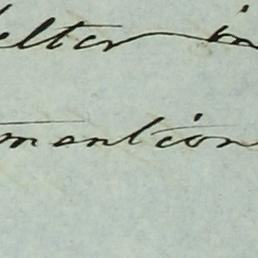 elter in
mention